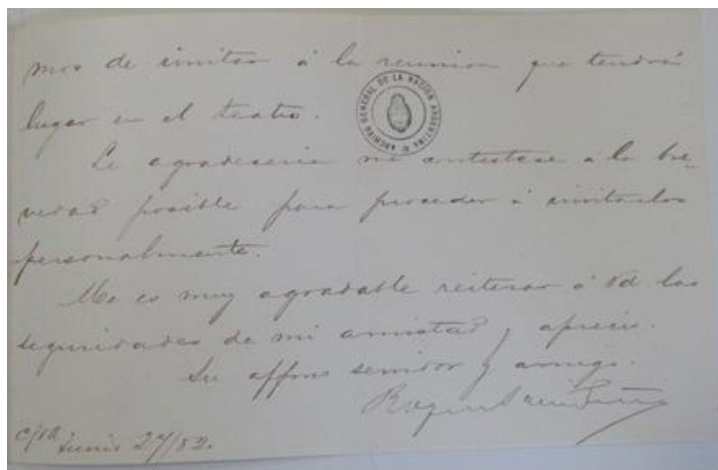 mos de invitar á la reunion que tendrá
lugar en el teatro.
ARCHIVO GENERAL DE LA NACION ARGENTINA
Le agradeceria me contestase a la bre-
vedad posible para proceder á invitarlos
personalmente.
Me es muy agradable reiterar á Vd las
seguridades de mi amistad y aprecio.
Su affmo servidor y amigo.
Roque Saenz Peña
Junio 27/82.